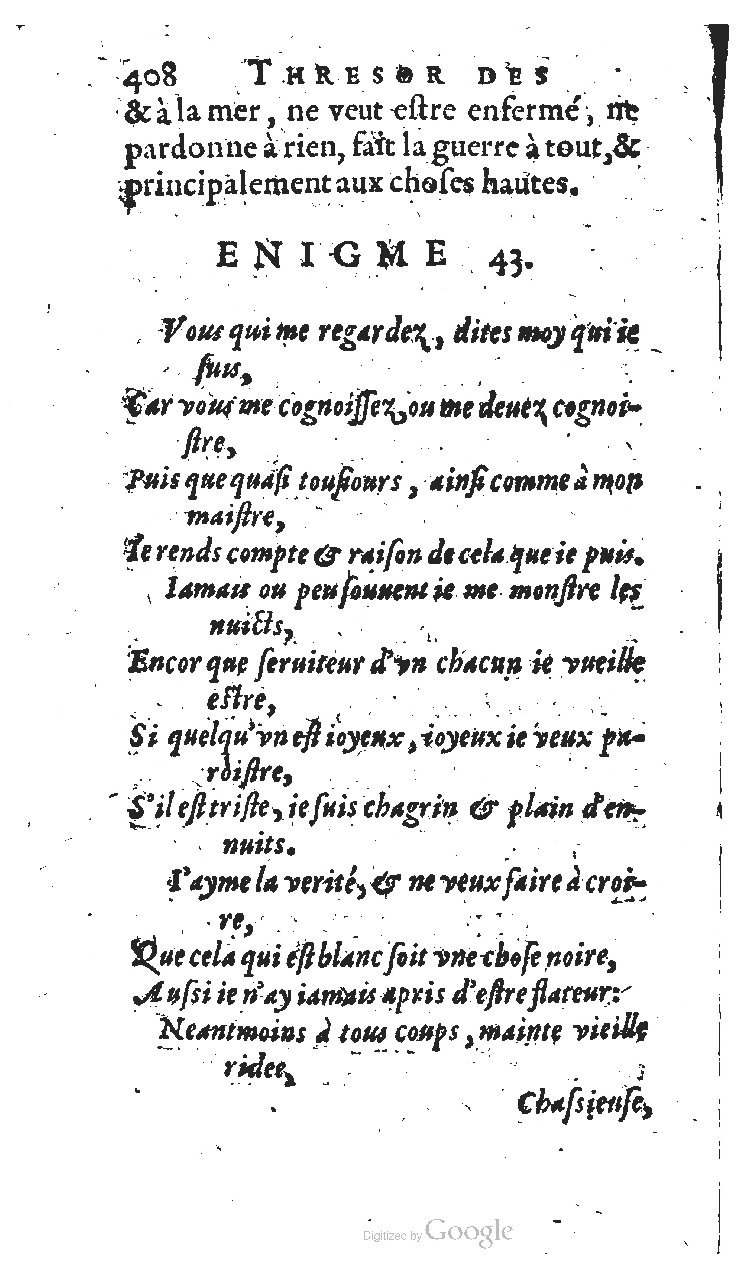 408 THRESOR DES
& à la mer, ne veut estre enfermé, ne
pardonne à rien, fait la guerre à tout, &
principalement aux choses hautes.
ENIGME 43.
Vous qui me regardez, dites moy qui ie
suis,
Car vous me cognoissez, ou me deuez cognoi-
stre,
Puis que quasi tousiours, ainsi comme à mon
maistre,
Ie rends compte & raison de cela que ie puis.
Iamais ou peu souuent ie me monstre les
nuicts,
Encor que seruiteur d'vn chacun ie vueille
estre,
Si quelqu'vn est ioyeux, ioyeux ie veux pa-
roistre,
S'il est triste, ie suis chagrin & plain d'en-
nuits.
I'ayme la verité, & ne veux faire à croi-
re,
Que cela qui est blanc soit vne chose noire,
Aussi ie n'ay iamais apris d'estre flateur:
Neantmoins à tous coups, mainte vieille
ridee,
Chassieuse,
Digitized by Google